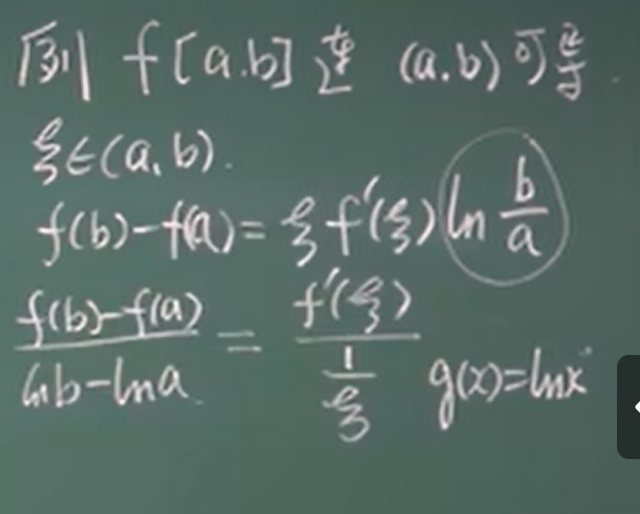 例 f[a.b]连 (a.b)可导.
ξ∈(a,b).
f(b)-f(a)=ξf'(ξ)ln b/a
(f(b)-f(a))/(lnb-lna) = f'(ξ)/(1/ξ) g(x)=lnx